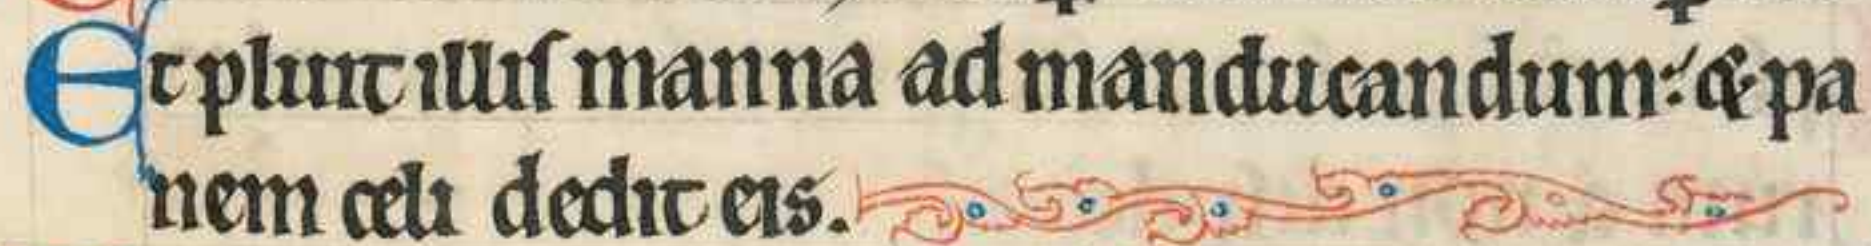 Et pluit illis manna ad manducandum: & pa
nem celi dedit eis.